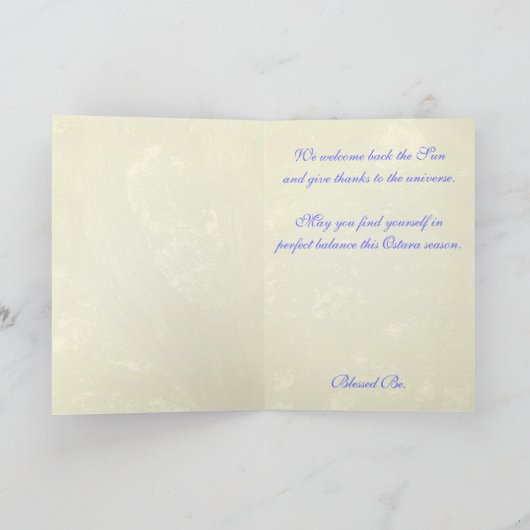 We welcome back the Sun
and give thanks to the universe.
May you find yourself in
perfect balance this Ostara season.
Blessed Be.